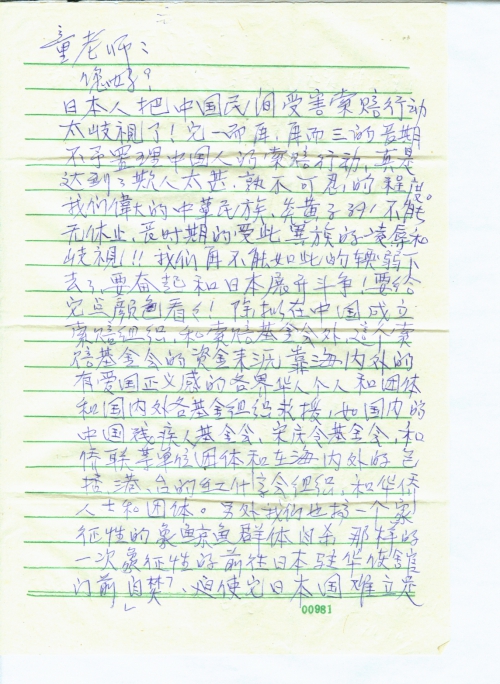 童老师：
您好？
日本人把中国民间受害索赔行动
太歧视了！它一而再，再而三的长期
不予置理中国人的索赔行动，真是
达到了欺人太甚，孰不可忍的程度。
我们偉大的中華民族，炎黄子孙，不能
无休止，长时期的受此 族的凌辱和
歧視！！我们再不能如此的软弱下
去了，要奋起和日本展开斗争！要给
它点颜色看看！除拟在中国成立
索赔组织，和索赔基金会外，这个索
赔基金会的資金来沅，靠海内外的
有爱国正义感的各界华人个人和团体
和国内外各基金组织救援，如国内的
中国残疾人基金会，宋庆令基金会，和
侨联等单位团体和在海内外的包
括，港、台的红十字会组织，和华侨
人士和团体。另外我们也搞一个象
征性的象鲸鱼群体自杀那样的
一次象征性的前往日本驻华使館
门前“自焚”，迫使它日本国难立足
00981